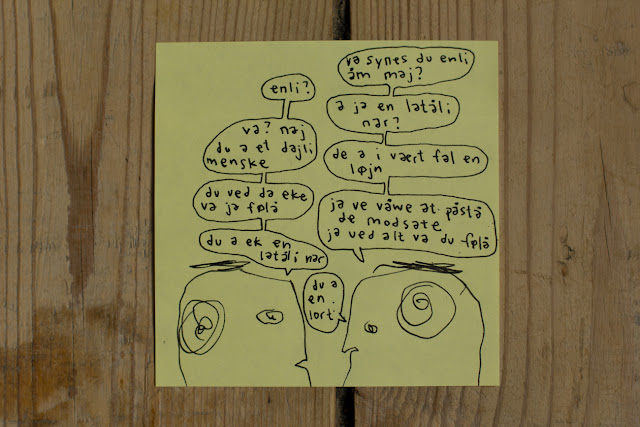 va synes du enli
åm maj?
enli?
a ja en latåli
nar?
va? naj
du a et dajli
menske
de a i vært fal en
løjn
du ved da eke
va ja følå
ja ve våwe at påstå
de modsate
ja ved alt va du følå
du a ek en
latåli nar
du a
en
lort